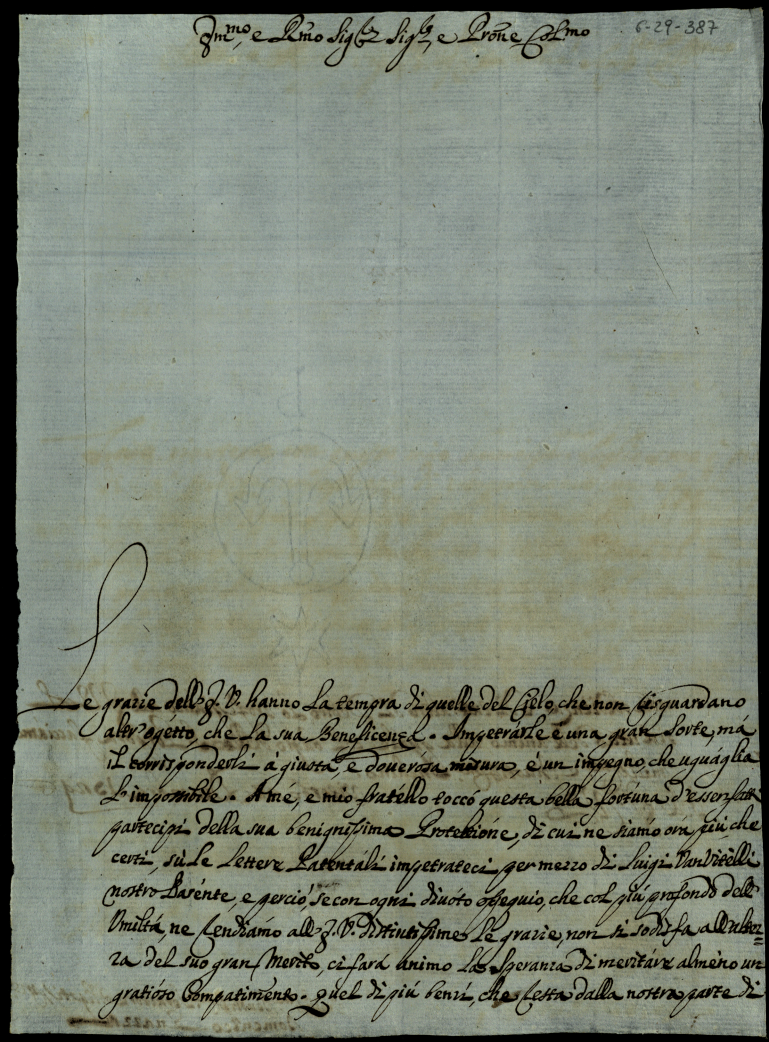 Ill.mo, e R.mo Sig.r Sig.r, e Prōne Col.mo
6-29-387
Le grazie dell'I. V. hanno la tempra di quelle del Cielo, che non risguardano
altr'ogétto, che la sua Beneficenza. Impetrarle è una gran sorte, mà
il corrisponderli à giusta, e douerosa misura, è un impegno, che uguáglia
l'impossibile. A mé, e mio fratello toccó questa bella fortuna d'esser fatti
partecipi della sua benignissima Protettione, di cui ne siamo ora piú che
certi, sù le lettere Patentáli impetrateci per mezzo di Luigi VanVitelli
nostro Parénte, e perciò, se con ogni diuóto ossequio, che col piú profondo dell'
Vmiltá, ne rendiámo all'I. V. distintissime le grazie, non si sodisfa all'altez=
za del suo gran Merito, ci fará animo la speranza di meritáre alméno un
gratióso Compatimento. Quel di piú benzí, che resta dalla nostra parte di